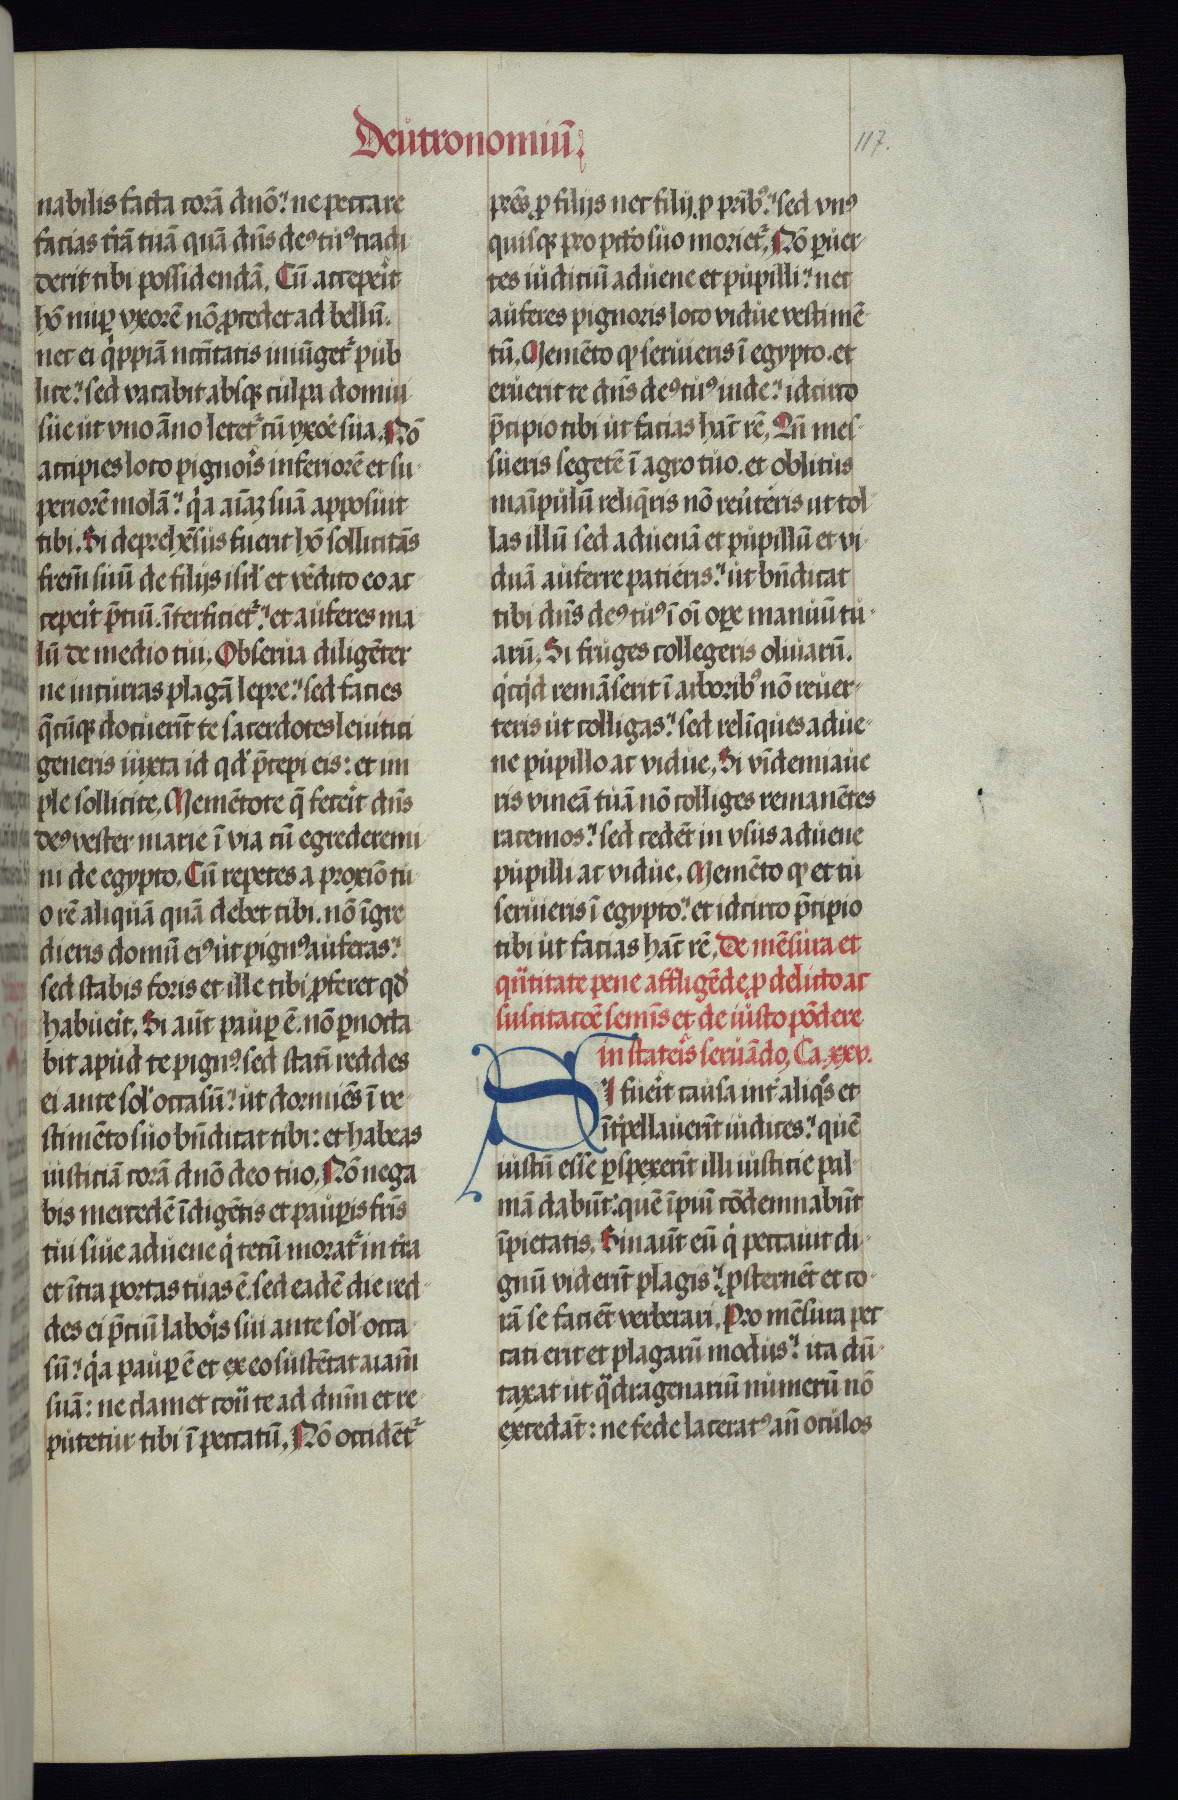 Deutronomiū
117.
nabilis facta corā dnō: ne peccare
facias trā tuā quā dns deꝰ tuꝰ tradi
derit tibi possidendā. Cū acceperit
hō nuꝑ vxorē nō ꝓcedet ad bellū.
nec ei q̇ppiā nccitatis iniūgetr pub
lice: sed vacabit absqꝫ culpa domui
sue ut vno āno letetr cū vxoe sua. Nō
accipies loco pignois inferiorē et su
periorē molā: q̇a aīaꝫ suā apposuit
tibi. Si deprehēsus fuerit hō sollicitās
frem suū de filijs isrl et vēdito eo ac
ceperit p̄ciū. īterficietr: et auferes ma
lū de medio tui. Obserua diligēter
ne incurras plagā lepre: sed facies
q̄cūqꝫ docuerīt te sacerdotes leuitici
generis iuxta id qd p̄cepi eis: et im
ple sollicite. Memētote q̄ fecerit dns
deꝰ vester marie ī via cū egrederemi
ni de egypto. Cū repetes a proxīo tu
o rē aliquā quā debet tibi. nō īgre
dieris domū eiꝰ ut pignꝰ auferas:
sed stabis foris et ille tibi ꝓferet qd
habuerit. Si aūt pauꝑ ē. nō ꝑnocta
bit apud te pignꝰ sed statī reddes
ei ante sol occasū: ut dormiēs ī ve
stimēto suo bn̄dicat tibi: et habeas
iusticiā corā dnō deo tuo. Nō nega
bis mercedē īdigētis et pauꝑis fr̄is
tui siue aduene q̇ tecū moratr in tr̄a
et ītra portas tuas ē. sed eadē die red
des ei p̄ciū labois sui ante sol occa
sū: q̇a pauꝑ ē et ex eo sustētat aiam
suā: ne clamet cōtra te ad dnm et re
putetur tibi ī peccatū. Nō occidētr
pr̄es ꝓ filijs nec filij ꝓ pr̄ibꝰ: sed vnꝰ
quisqꝫ pro pctō suo morietr. Nō ꝑuer
tes iudiciū aduene et pupilli: nec
auferes pignoris loco vidue vestimē
tū. Memēto qꝫ seruieris ī egypto. et
eruerit te dns deꝰ tuꝰ inde: idcirco
p̄cipio tibi ut facias hāc rē. Qn̄ mes
sueris segetē ī agro tuo. et oblitus
manipulū reliq̄ris nō reuteris ut tol
las illū sed aduenā et pupillū et vi
duā auferre patieris: ut bn̄dicat
tibi dns deꝰ tuꝰ ī oī oꝑe manuū tu
arū. Si fruges collegeris oliuarū.
q̇cq̇d remāserit ī arboribꝰ nō reuer
teris ut colligas: sed relīques adue
ne pupillo ac vidue. Si vīdemiaue
ris vineā tuā nō colliges remanētes
racemos: sed cedēt in vsus aduene
pupilli ac vidue. Memēto qꝫ et tu
seruieris ī egypto: et idcirco p̄cipio
tibi ut facias hāc rē. De mēsura et
qūtitate pene affligēde ꝓ delicto ac
suscitatoē semīs et de iusto pōdere
in stateis seruādo. Ca. xxv.
SI fuerit causa int aliq̇s et
īt̄pellauerīt iudices: quē
iustū esse ꝑspexerīt illi iusticie pal
mā dabūt: quē īpiū cōdemnabūt
īpietatis. Sin aūt eū q̇ peccauit di
gnū viderīt plagis: ꝓsternēt et co
rā se faciēt verberari. Pro mēsura pec
cati erit et plagarū modus: ita dū
taxat ut q̄dragenariū numerū nō
excedāt: ne fede laceratꝰ an̄ oculos